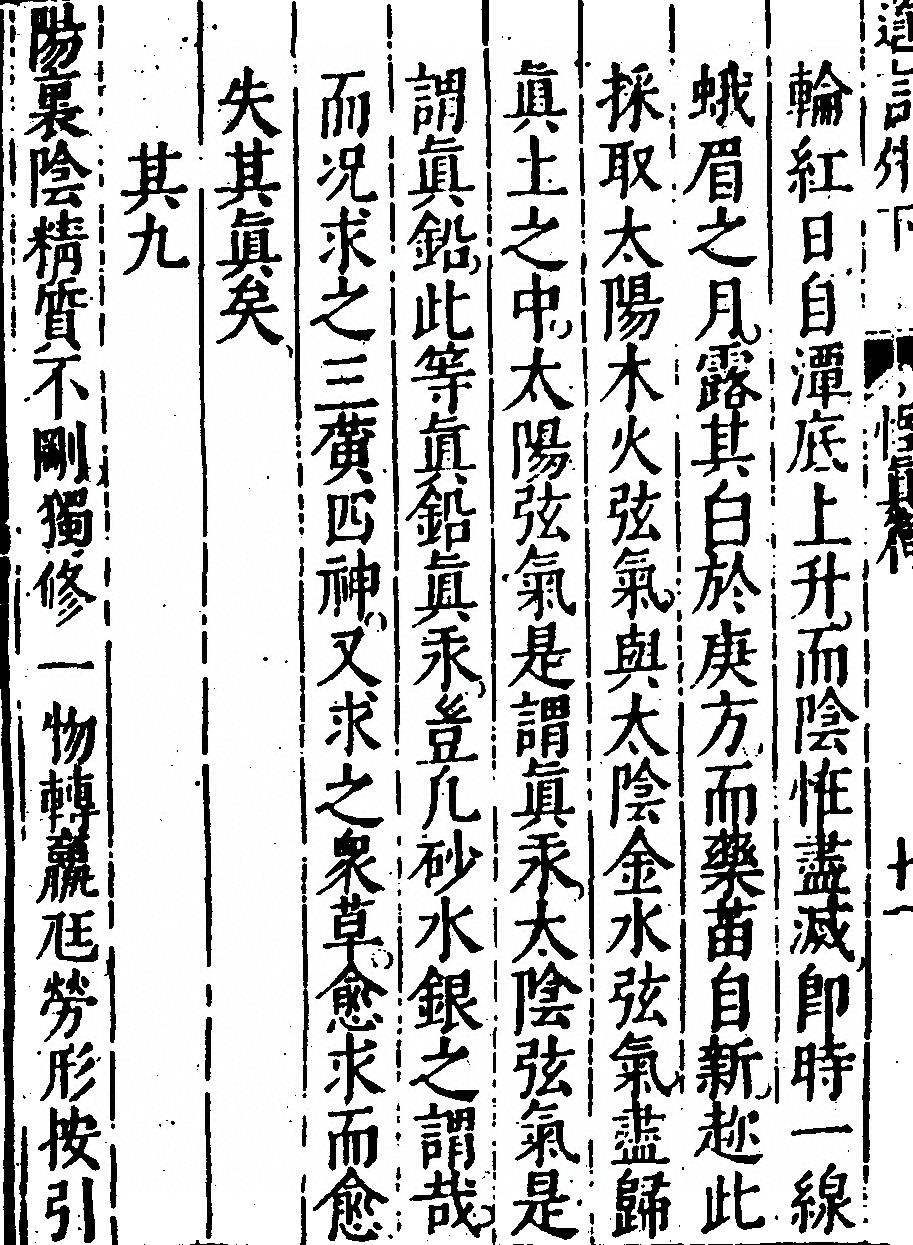 輪紅日自潭底上升而陰恠盡滅即時一線
蛾眉之月露其白於庚方而藥苗自新趂此
採取太陽木火弦氣與太陰金水弦氣盡歸
眞土之中太陽弦氣是謂眞汞太陰弦氣是
謂眞鉛此等眞鉛眞汞豈凡砂水銀之謂哉
而况求之三黄四神又求之衆草愈求而愈
失其眞矣
其九
陽裏陰精質不剛獨修一物轉羸尫勞形按引